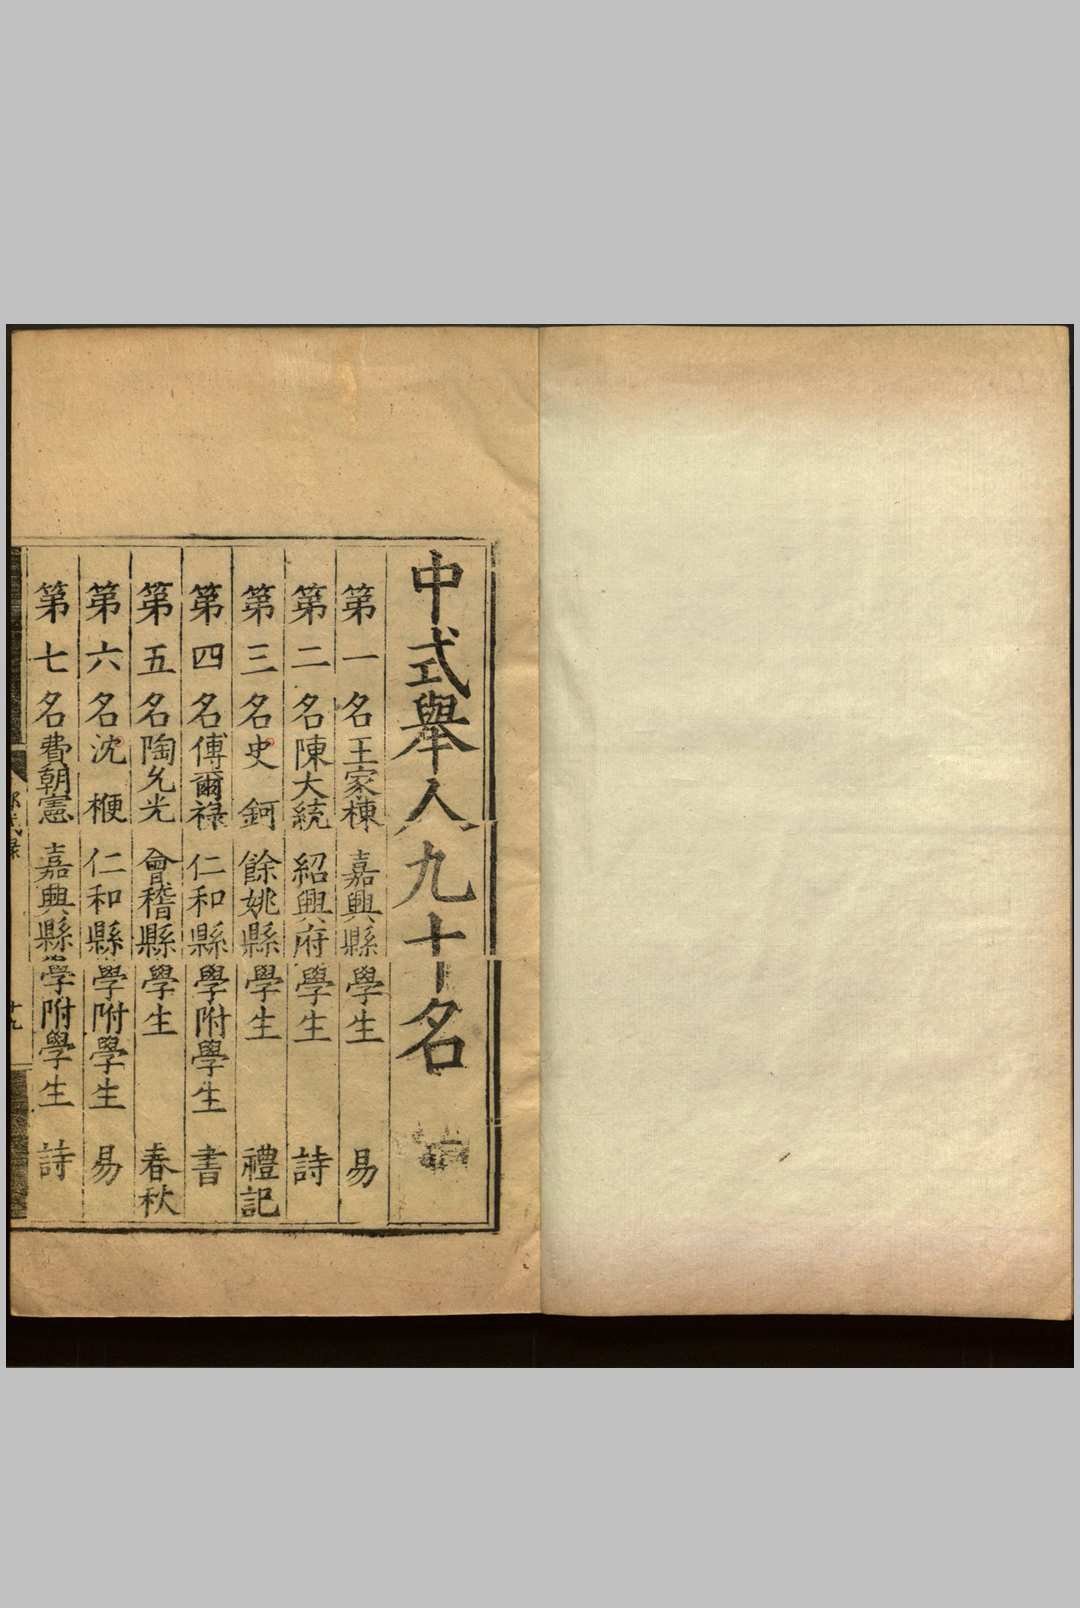 中式舉人九十名
第一名王家棟 嘉興縣學生 易
第二名陳大統 紹興府學生 詩
第三名史鈳 餘姚縣學生 禮記
第四名傅爾祿 仁和縣學附學生 書
第五名陶允光 會稽縣學生 春秋
第六名沈楩 仁和縣學附學生 易
第七名費朝憲 嘉興縣學附學生 詩